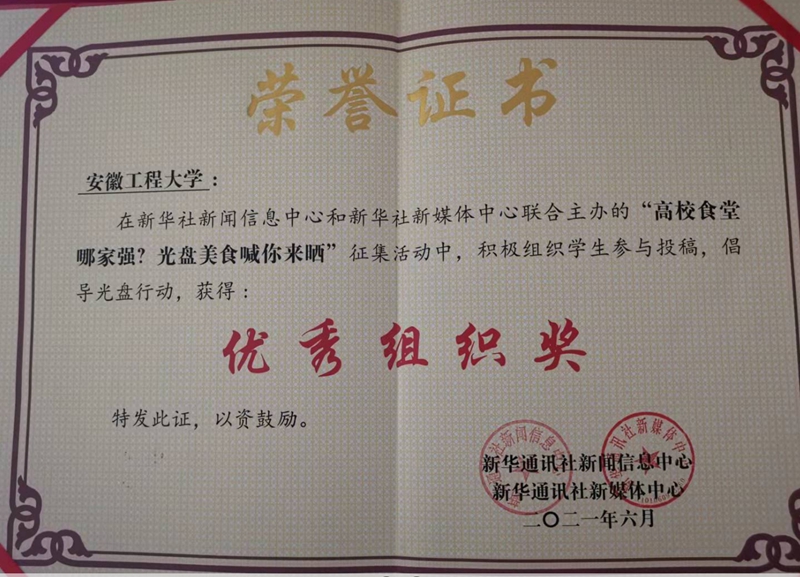 荣誉证书
安徽工程大学：
在新华社新闻信息中心和新华社新媒体中心联合主办的“高校食堂
哪家强？光盘美食喊你来晒”征集活动中，积极组织学生参与投稿，倡
导光盘行动，获得：
优秀组织奖
特发此证，以资鼓励。
新华通讯社新闻信息中心
新华通讯社新媒体中心
二〇二一年六月